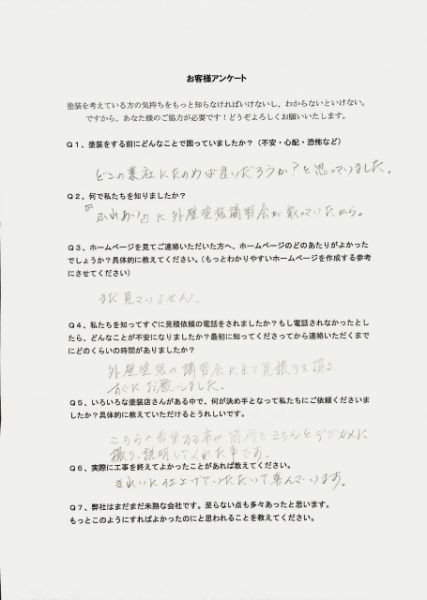 お客様アンケート
塗装を考えている方の気持ちをもっと知らなければいけないし、わからないといけない。
ですから、あなた様のご協力が必要です！どうぞよろしくお願いいたします。
Ｑ１、塗装をする前にどんなことで困っていましたか？（不安・心配・恐怖など）
どこの業社にたのめば良いだろうか？と思っていました。
Ｑ２、何で私たちを知りましたか？
ふれあい に外壁塗装講習会が載っていたから。
Ｑ３、ホームページを見てご連絡いただいた方へ、ホームページのどのあたりがよかった
でしょうか？具体的に教えてください。（もっとわかりやすいホームページを作成する参考
にさせてください）
まだ見ていません。
Ｑ４、私たちを知ってすぐに見積依頼の電話をされましたか？もし電話されなかったとし
たら、どんなことが不安になりましたか？最初に知ってくださってから連絡いただくまで
にどのくらいの時間がありましたか？
外壁塗装の講習会に出て見積りを頂き
すぐにお願いしました。
Ｑ５、いろいろな塗装店さんがある中で、何が決め手となって私たちにご依頼くださいま
したか？具体的に教えていただけるとうれしいです。
こちらの希望する 箇所をきちんとデジカメに
撮り、説明してくれた事です。
Ｑ６、実際に工事を終えてよかったことがあれば教えてください。
きれいに仕上げていただいて喜んでいます。
Ｑ７、弊社はまだまだ未熟な会社です。至らない点も多々あったと思います。
もっとこのようにすればよかったのにと思われることを教えてください。